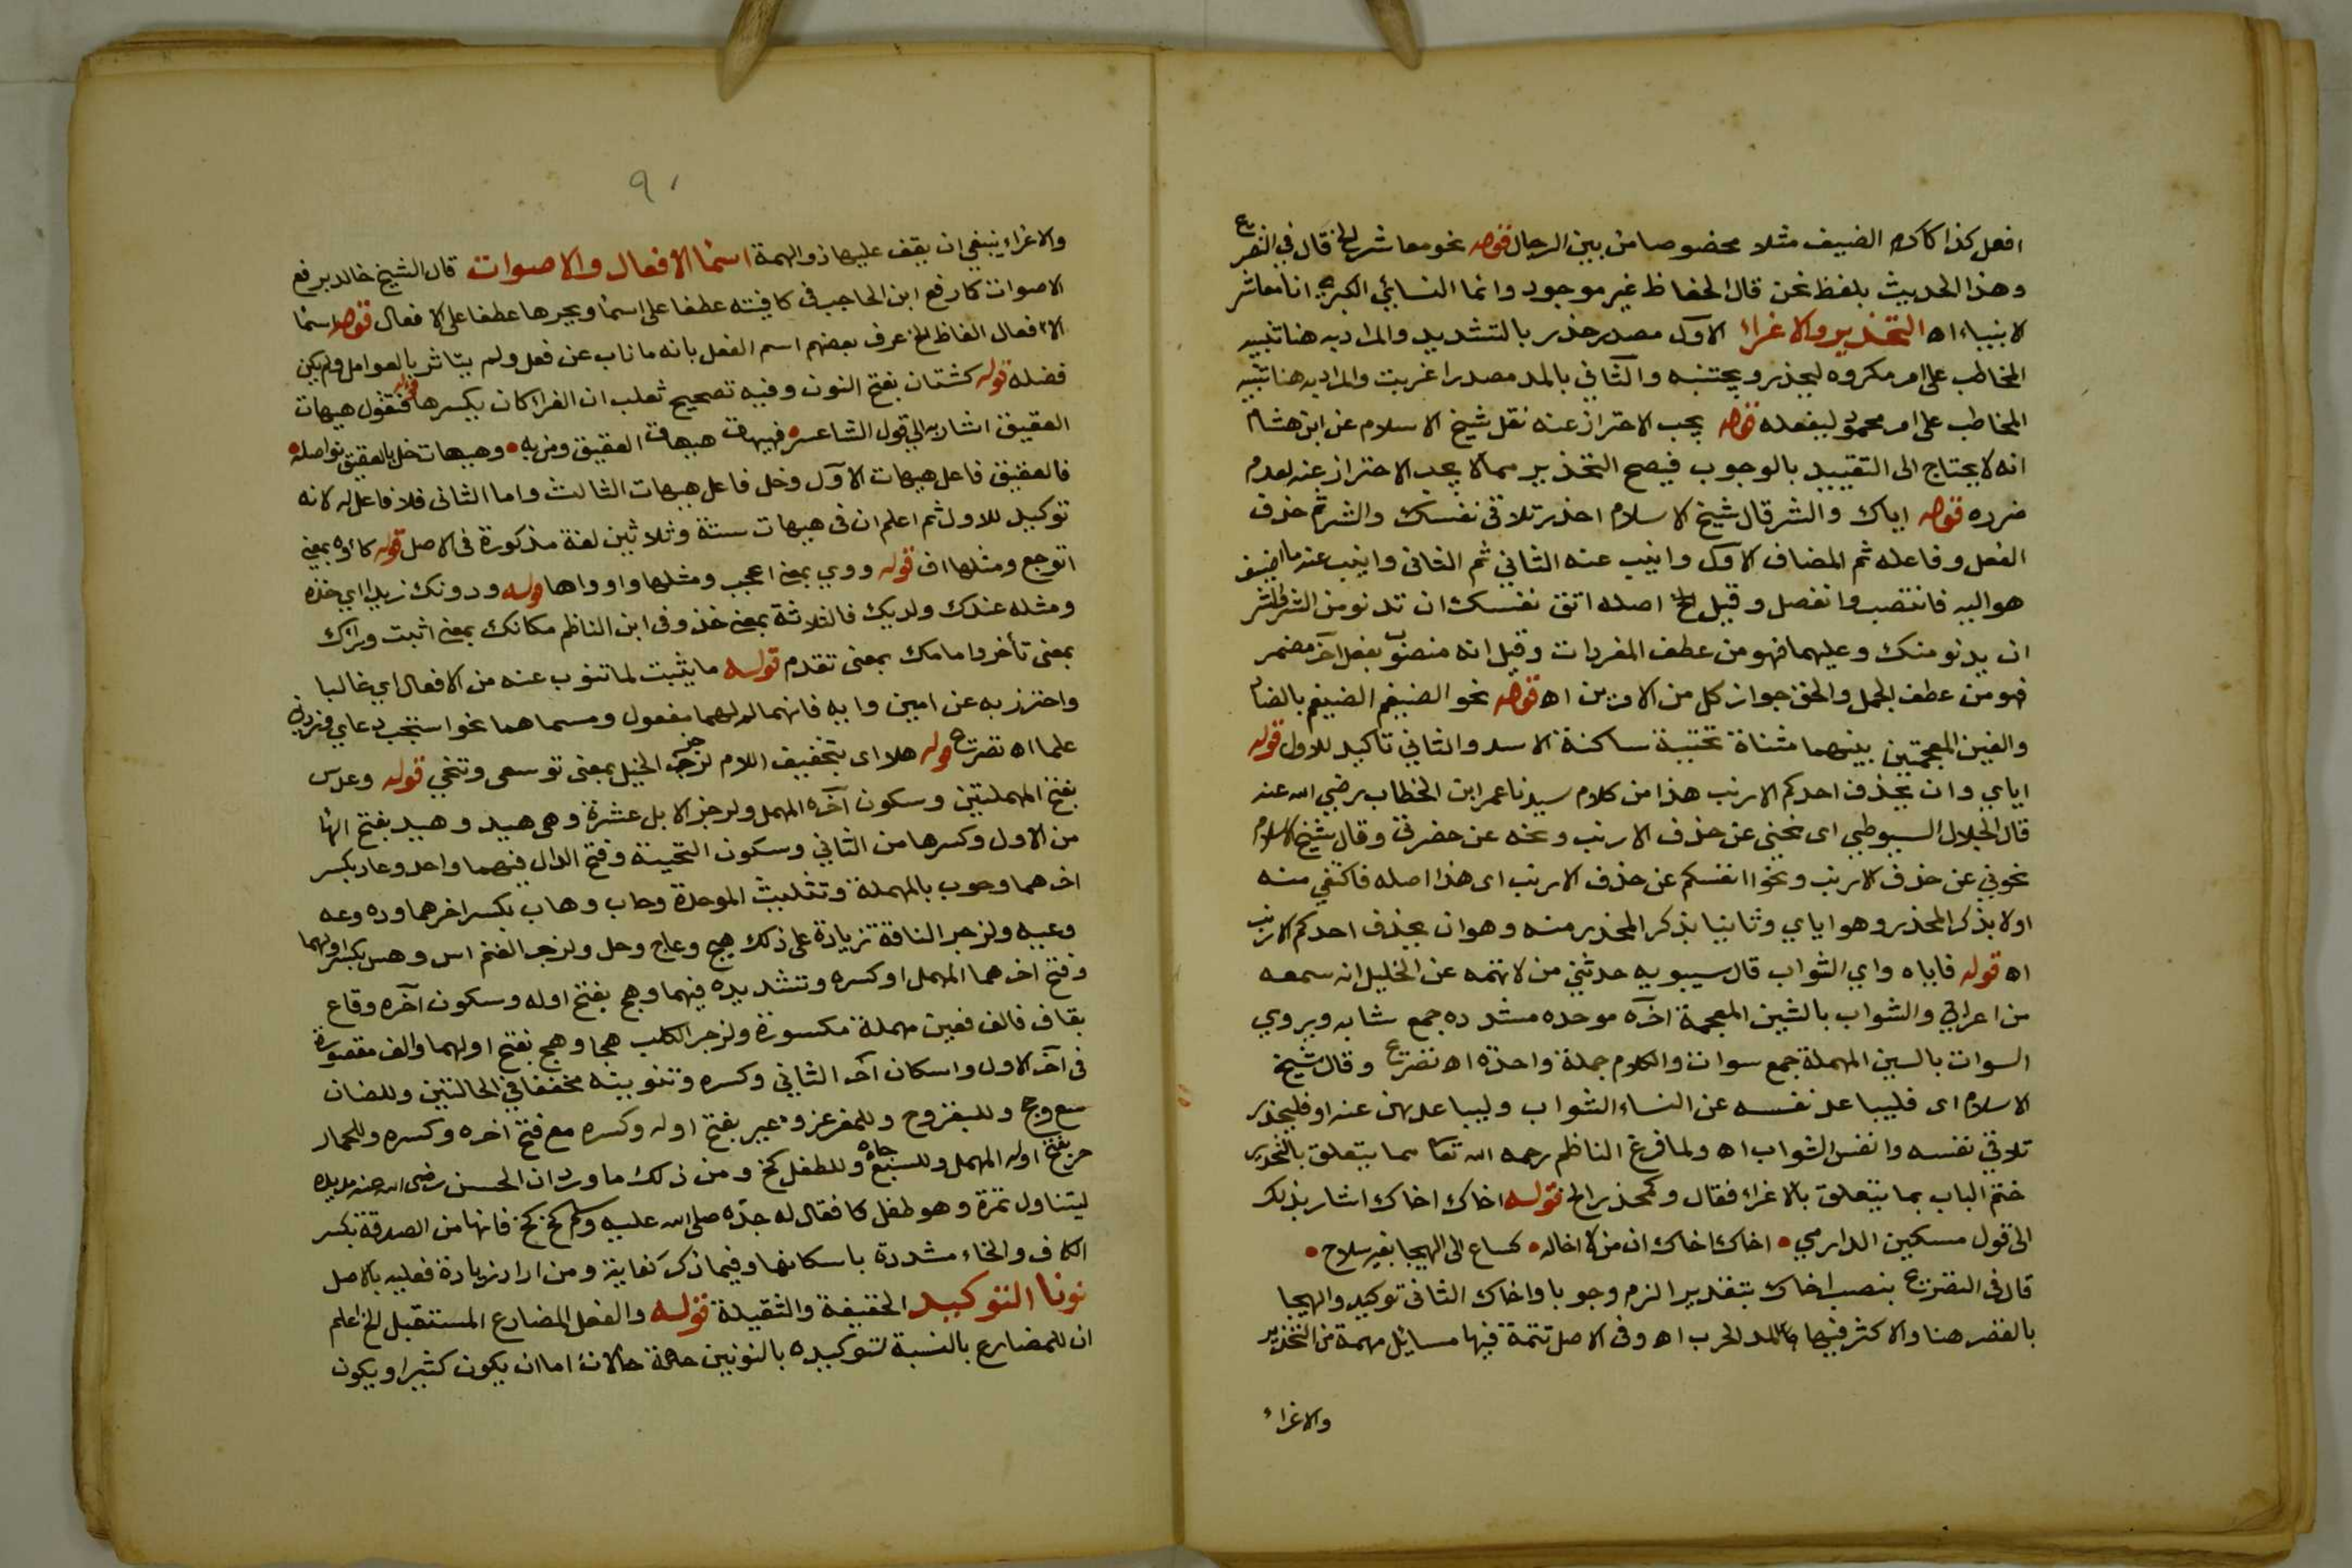 افعل كذا كاكرم الضيف مثلا مخصوصا من بين الرجال قوله نحو معاشر الخ قال في التصريح
وهذا الحديث بلفظ نحن قال الحفاظ غير موجود وانما النسائي الكبرى انا معاشر
الانبياء اه التحذير والاغراء الاول مصدر حذر بالتشديد والمراد به هنا تنبيه
المخاطب على امر مكروه ليحذر ويجتنبه والثاني بالمد مصدر اغريت والمراد به هنا تنبيه
المخاطب على امر محمود ليفعله قوله يجب الاحتراز عنه نقل شيخ الاسلام عن ابن هشام
انه لا يحتاج الى التقييد بالوجوب فيصح التحذير مما لا يجب الاحتراز عنه لعدم
ضرره قوله اياك والشر قال شيخ الاسلام احذر تلاقي نفسك والشر ثم حذف
الفعل وفاعله ثم المضاف الاول وانيب عنه الثاني ثم الثاني وانيب عنه ما اضيف
هو اليه فانتصب وانفصل وقيل اصله اتق نفسك ان تدنو من الشر والشر
ان يدنو منك وعليهما فهو من عطف المفردات وقيل انه منصوب بفعل آخر مضمر
فهو من عطف الجمل والحق جواز كل من الامرين اه قوله نحو الضيغم الضيغم بالضاد
والغين المعجمتين بينهما مثناة تحتية ساكنة الاسد والثاني تاكيد للاول قوله
اياي وان يحذف احدكم الارنب هذا من كلام سيدنا عمر ابن الخطاب رضي الله عنه
قال الجلال السيوطي اى نحني عن حذف الارنب ونحه عن حضرتي وقال شيخ الاسلام
نحوني عن حذف الارنب ونحوا انفسكم عن حذف الارنب اى هذا اصله فاكتفي منه
اولا بذكر المحذر وهو اياي وثانيا بذكر المحذر منه وهو ان يحذف احدكم الارنب
اه قوله فاياه واي الشواب قال سيبويه حدثني من لا تهمه عن الخليل انه سمعه
من اعرابي والشواب بالشين المعجمة آخره موحده مشدده جمع شابه ويروي
السوات بالسين المهملة جمع سوات والكلام جملة واحدة اه تصريح وقال شيخ
الاسلام اى فليباعد نفسه عن النساء الشواب وليباعدهن عنه او فليحذر
تلاقي نفسه وانفس الشواب اه ولما فرغ الناظم رحمه الله تعا مما يتعلق بالتحذير
ختم الباب بما يتعلق بالاغراء فقال وكمحذر الخ قوله اخاك اخاك اشار بذلك
الى قول مسكين الدارمي • اخاك اخاك ان من لا اخاله • كساع الى الهيجا بغير سلاح •
قال في التصريح بنصب اخاك بتقدير الزم وجوبا واخاك الثاني توكيد والهيجا
بالقصر هنا والاكثر فيها المد الحرب اه وفى الاصل تتمة فيها مسائل مهمة من التحذير
والاغراء
٩٠
والاغراء ينبغي ان يقف عليها ذو الهمة اسما الافعال والاصوات قال الشيخ خالد برفع
الاصوات كارفع ابن الحاجب في كافيته عطفا على اسما ويجرها عطفا على الافعال قوله اسما
الافعال الفاظ الخ عرف بعضهم اسم الفعل بانه ما ناب عن فعل ولم يتاثر بالعوامل ولم يكن
فضله قوله كشتان بفتح النون وفيه تصحيح ثعلب ان الفراء كان يكسرها قوله فتقول هيهات
العقيق اشار به الي قول الشاعر • فهيهات هيهات العقيق ومن به • وهيهات خل بالعقيق نواصله •
فالعقيق فاعل هيهات الاول وخل فاعل هيهات الثالث واما الثاني فلا فاعل له لانه
توكيد للاول ثم اعلم ان في هيهات ستة وثلاثين لغة مذكورة في الاصل قوله كاوه بمعنى
اتوجع ومثلها اف قوله ووي بمعنى اعجب ومثلها وا وواها قوله ودونك زيدا اي خذه
ومثله عندك ولديك فالثلاثة بمعنى خذ وفى ابن الناظم مكانك بمعنى اثبت وورائك
بمعنى تأخر وامامك بمعنى تقدم قوله ما يثبت لما تنوب عنه من الافعال اي غالبا
واحترز به عن امين وايه فانهما لم لهما مفعول ومسماهما نحو استجب دعاي وزدني
علما اه تصريح قوله هلا اى بتخفيف اللام لزجر الخيل بمعنى توسعى وتنحي قوله وعدس
بفتح المهملتين وسكون آخره المهمل ولزجر الابل عشرة وهى هيد وهيد بفتح الها
من الاول وكسرها من الثاني وسكون التحتية وفتح الدال فيهما واحد وعاد بكسر
اخرهما وحوب بالمهملة وتثليث الموحدة وحاب وهاب بكسر اخرهما وده وعه
وعيه ولزجر الناقة زيادة على ذلك هيج وعاج وحل ولزجر الغنم اس وهس بكسر اولهما
وفتح اخرهما المهمل او كسره وتشديده فيهما وهج بفتح اوله وسكون آخره وقاع
بقاف فالف فعين مهملة مكسورة ولزجر الكلب هجا وهج بفتح اولهما والف مقصورة
في آخر الاول واسكان آخر الثاني وكسره وتنوينه مخففا في الحالتين وللضان
سع وج وللبقر وح وللمعز عز وعيز بفتح اوله وكسره مع فتح اخره وكسره وللحمار
حر بفتح اوله المهمل وللسبع جاه وللطفل كخ ومن ذلك ما ورد ان الحسن رضى الله عنه مد يده
ليتناول تمرة وهو طفل كا فقال له جده صلى الله عليه وسلم كخ كخ فانها من الصدقة بكسر
الكاف والخاء مشددة باسكانها وفيما ذكر كفاية ومن اراد زيادة فعليه بالاصل
نونا التوكيد الخفيفة والثقيلة قوله والفعل المضارع المستقبل الخ اعلم
ان للمضارع بالنسبة لتوكيده بالنونين حالات اما ان يكون كثيرا ويكون